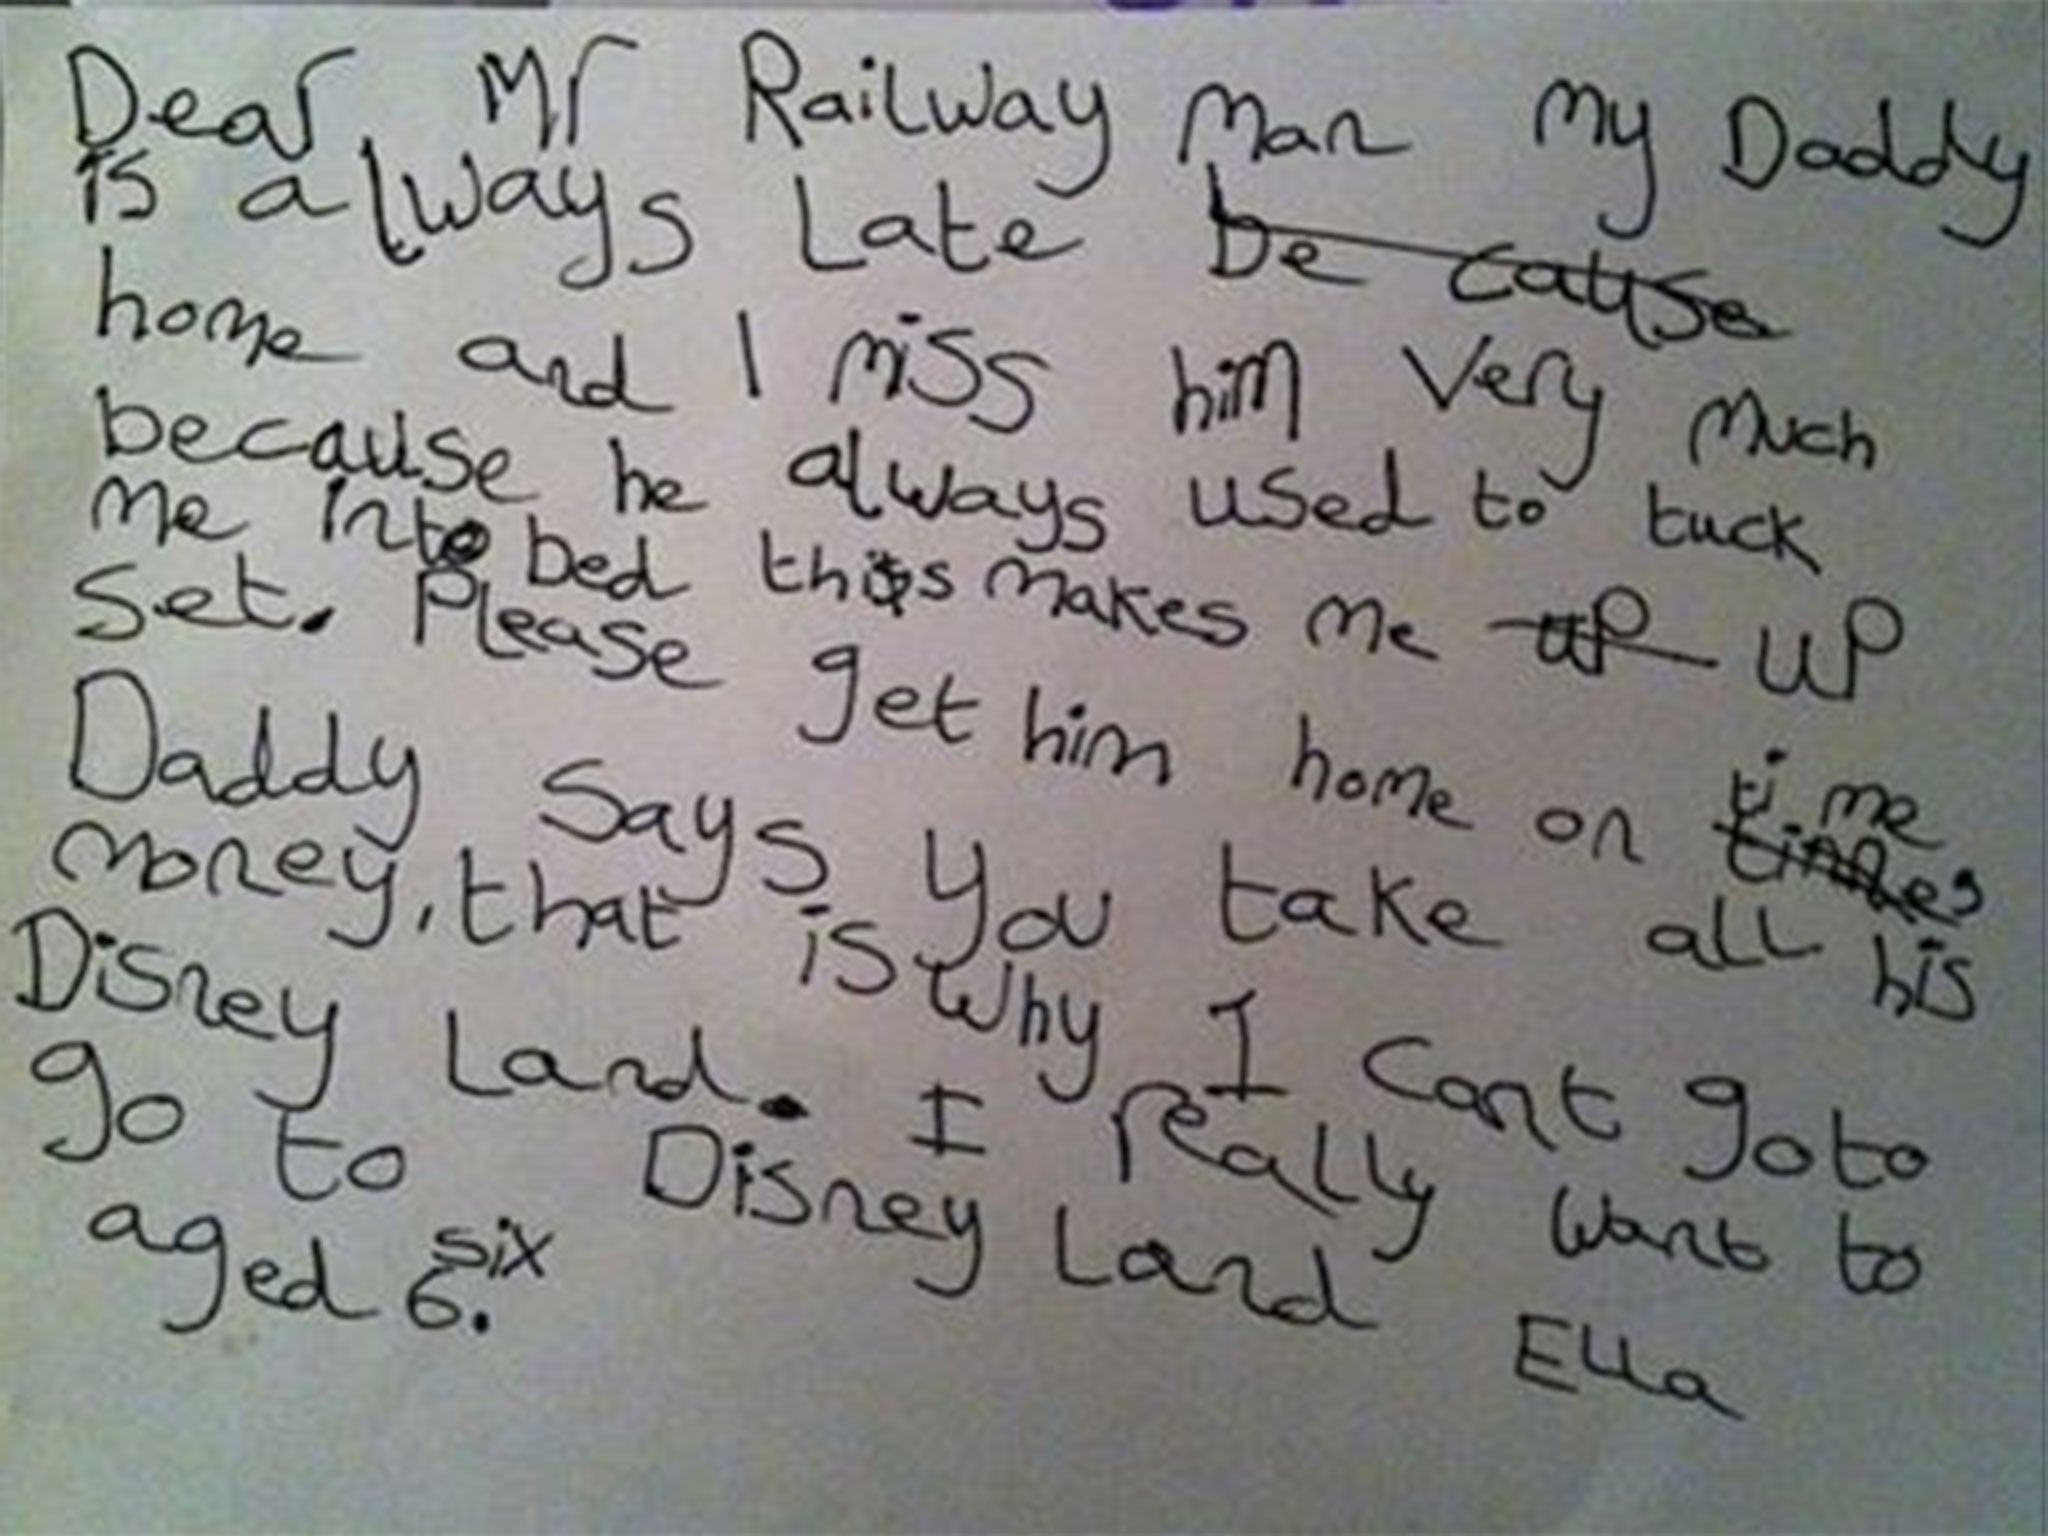 Dear Mr Railway Man my Daddy
is always Late be cause
home and I miss him very much
because he always used to tuck
me into bed this makes me up up
Set. Please get him home on time
times
Daddy says you take all his
money, that is why I cant go to
Disney Land. I really want to
go to Disney Land Ella
aged 6. six